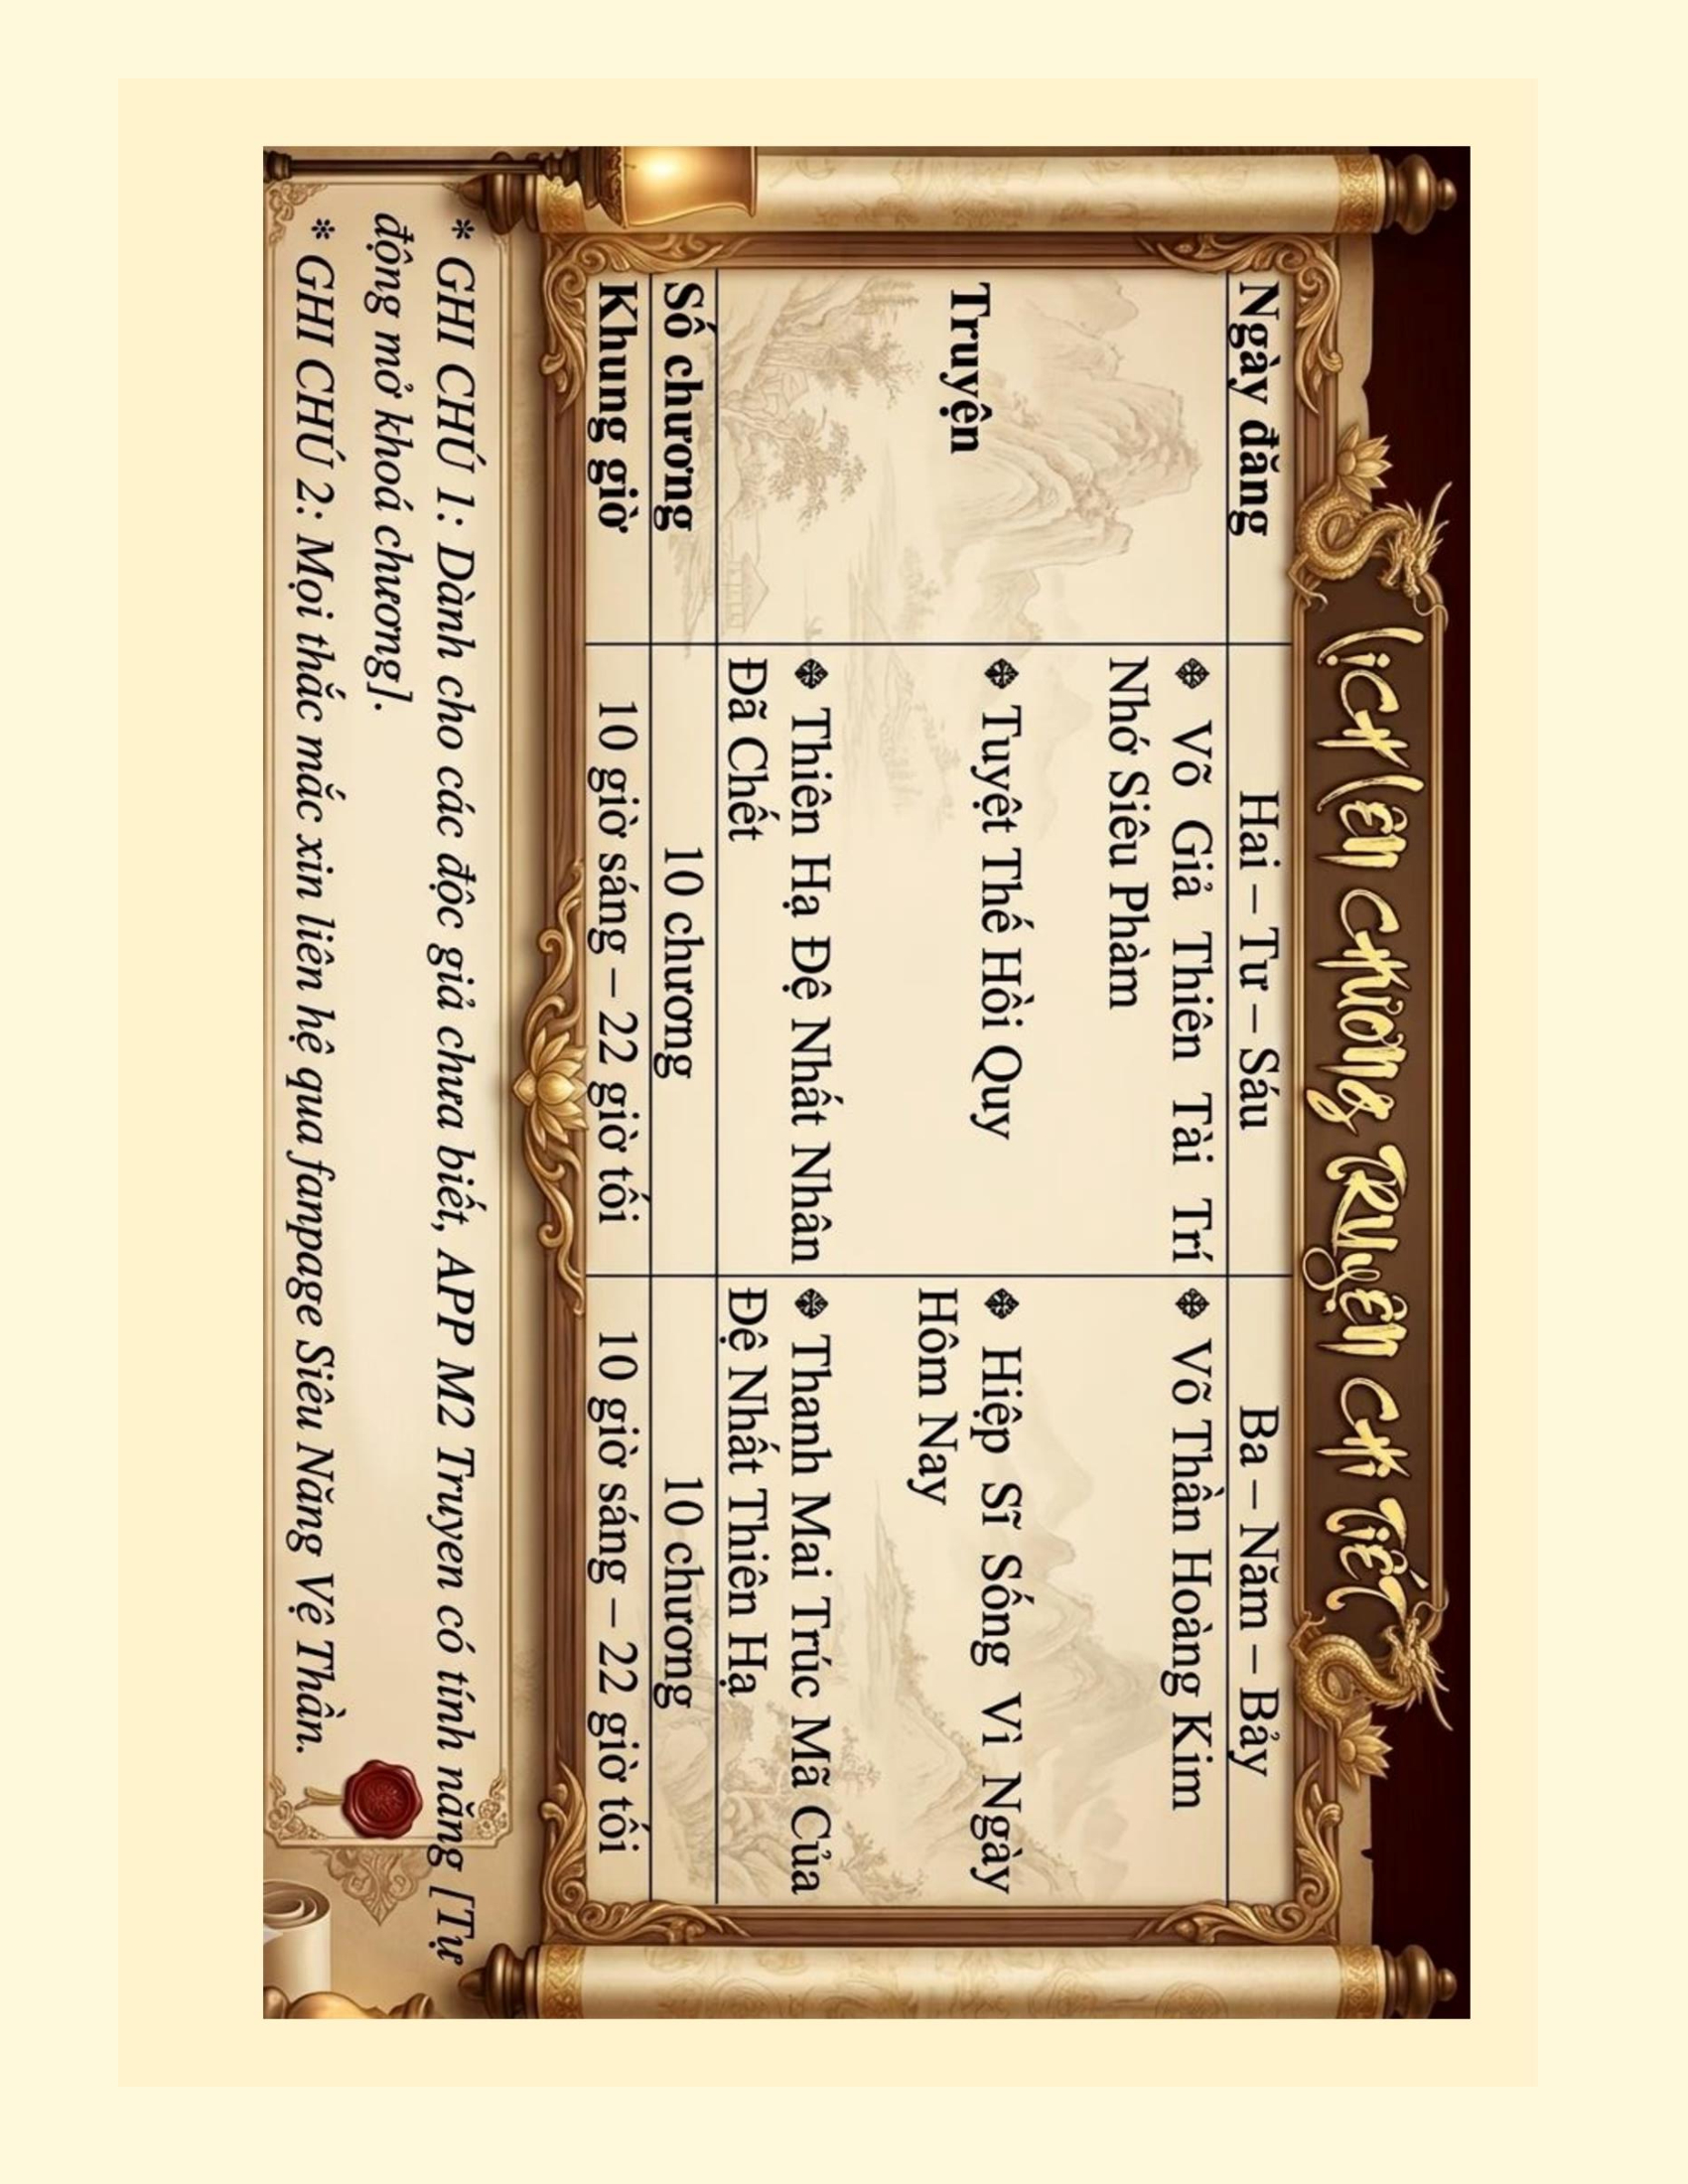 LỊCH LÊN CHƯƠNG TRUYỆN CHI TIẾT
Ngày đăng
Hai – Tư – Sáu
Ba – Năm – Bảy
Truyện
❖ Võ Giả Thiên Tài Trí
Nhớ Siêu Phàm
❖ Tuyệt Thế Hồi Quy
❖ Thiên Hạ Đệ Nhất Nhân
Đã Chết
❖ Võ Thần Hoàng Kim
❖ Hiệp Sĩ Sống Vì Ngày
Hôm Nay
❖ Thanh Mai Trúc Mã Của
Đệ Nhất Thiên Hạ
Số chương
10 chương
10 chương
Khung giờ
10 giờ sáng – 22 giờ tối
10 giờ sáng – 22 giờ tối
* GHI CHÚ 1: Dành cho các độc giả chưa biết, APP M2 Truyen có tính năng [Tự
động mở khoá chương].
* GHI CHÚ 2: Mọi thắc mắc xin liên hệ qua fanpage Siêu Năng Vệ Thần.